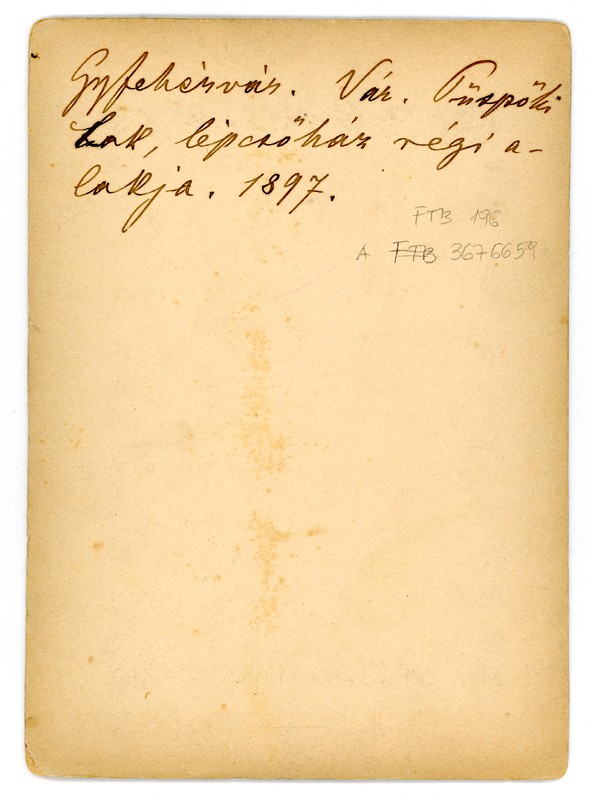 Gyfehérvár. Vár. Püspöki
Lak, lépcsőház régi a-
lakja. 1897.
FTB 196
A FTB 3676659